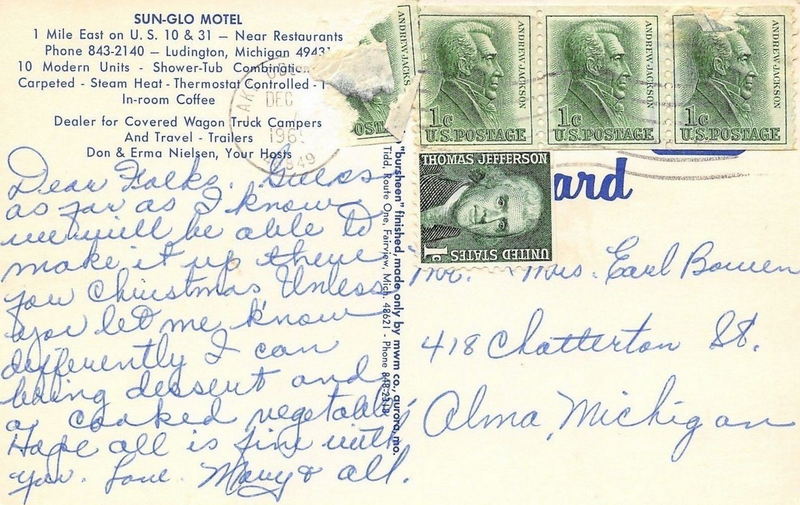 SUN-GLO MOTEL
1 Mile East on U.S. 10 & 31 — Near Restaurants
Phone 843-2140 — Ludington, Michigan 49431
10 Modern Units - Shower-Tub Combination
Carpeted - Steam Heat - Thermostat Controlled -
In-room Coffee
Dealer for Covered Wagon Truck Campers
And Travel - Trailers
Don & Erma Nielsen, Your Hosts
DEC
196
Dear Folks. Guess
as far as I know
we will be able to
make it up there
for Christmas Unless
you let me know
differently I can
bring dessert and
a cooked vegetable.
Hope all is fine with
you. Love. Mary & all.
"bursheen" finished, made only by mwm co., aurora, mo.
Tida, Route One, Fairview, Mich. 48621 - Phone
ANDREW JACKS
OSTA
ANDREW JACKSON
1c
U.S. POSTAGE
ANDREW JACKSON
1c
U.S. POSTAGE
ANDREW JACKSON
1c
U.S. POSTAGE
THOMAS JEFFERSON
1c
UNITED STATES
ard
Mr. Mrs. Earl Bowen
418 Chatterton St.
Alma, Michigan